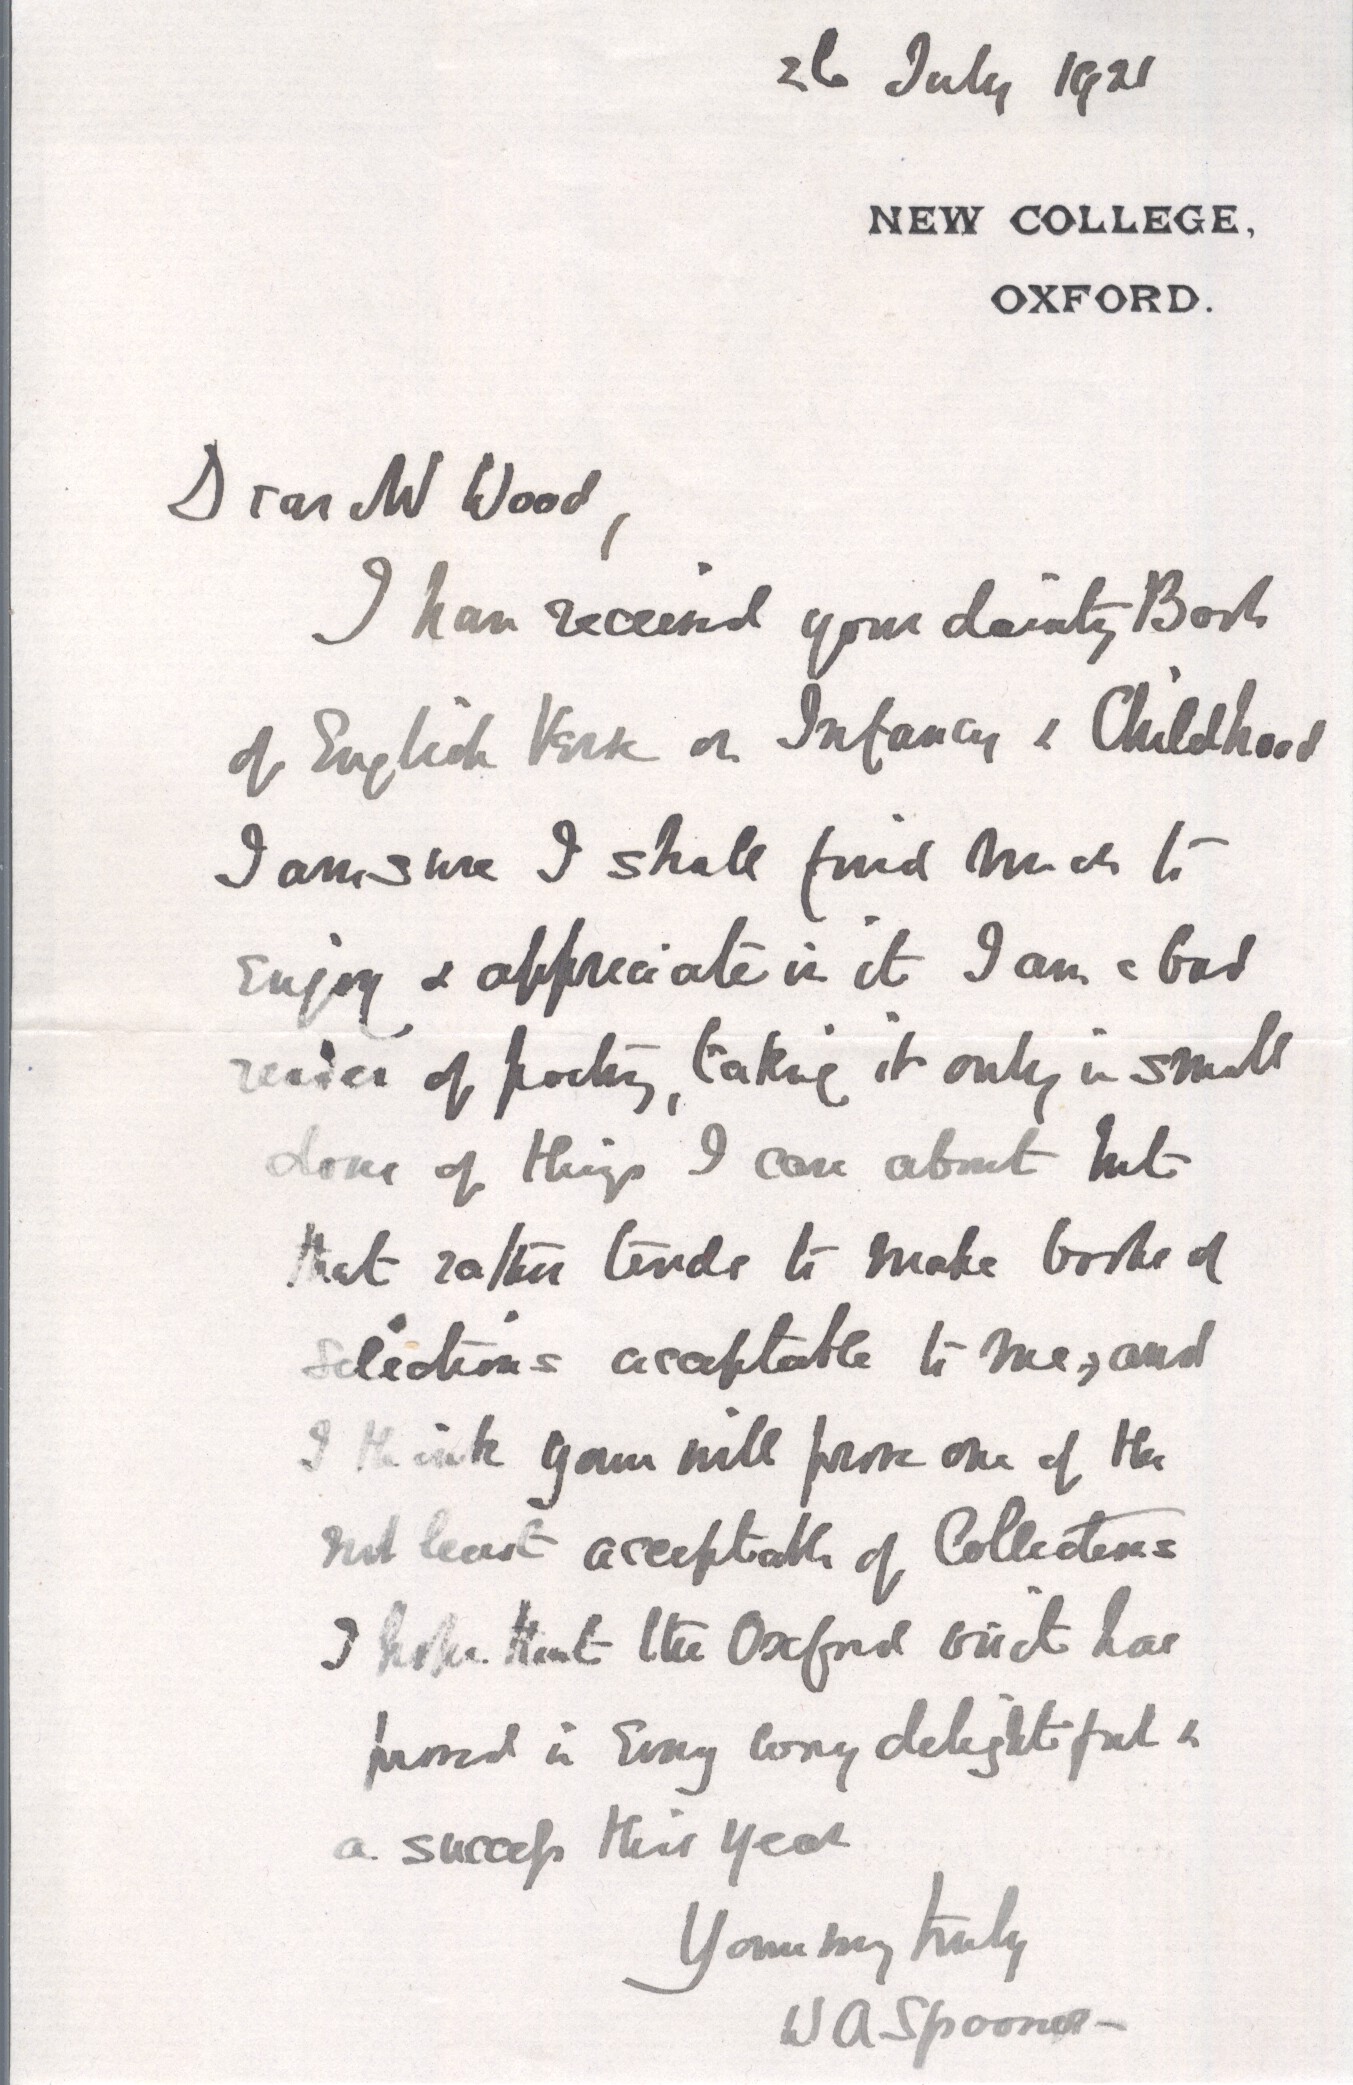 26 July 1921
NEW COLLEGE,
OXFORD.
Dear Mr Wood,
I have received your dainty Book
of English Verse on Infancy & Childhood
I am sure I shall find much to
enjoy & appreciate in it I am a bad
reader of poetry, taking it only in small
doses of things I care about but
that rather tends to make books of
selections acceptable to me, and
I think yours will prove one of the
not least acceptable of Collections
I hope that the Oxford visit has
proved in every way delightful &
a success this year
Yours very truly
W A Spooner